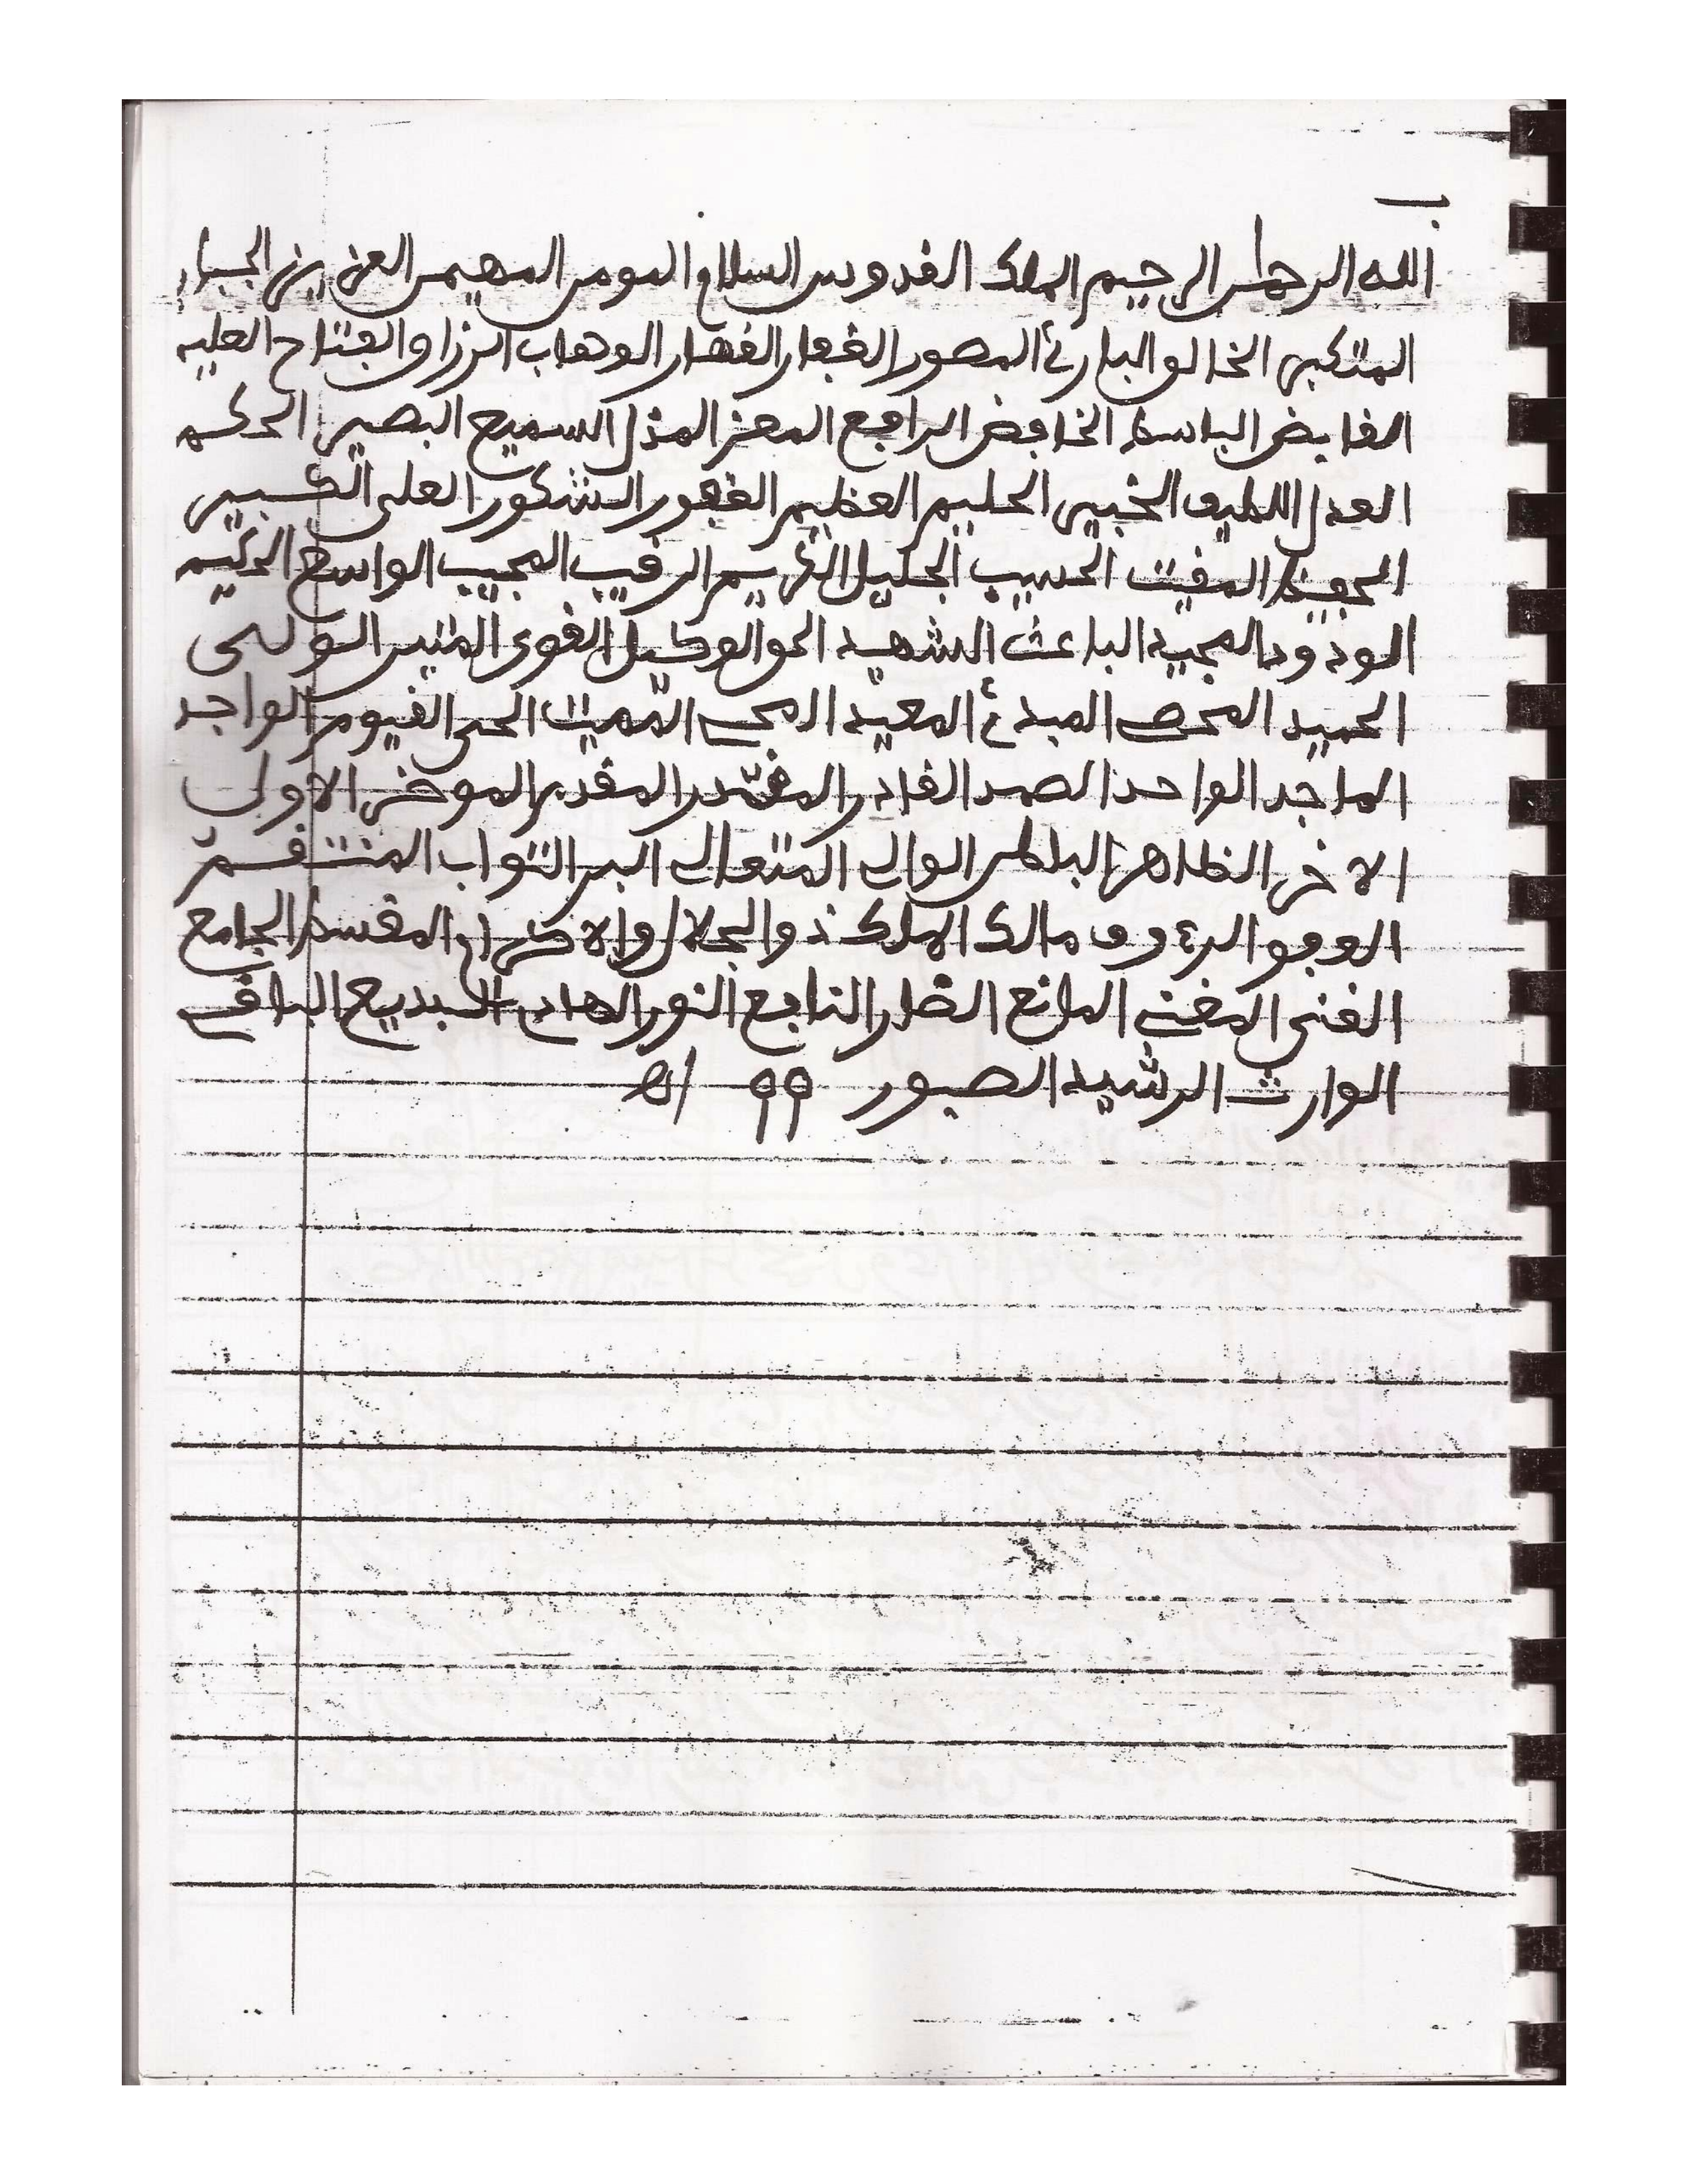 ب
الله الرحمٰن الرحيم الملك القدوس السلام المومن المهيمن العزيز الجبار
المتكبر الخالق البارئ المصور الغفار القهار الوهاب الرزاق الفتاح العليم
القابض الباسط الخافض الرافع المعز المذل السميع البصير الحكم
العدل اللطيف الخبير الحليم العظيم الغفور الشكور العلى الكبير
الحفيظ المقيت الحسيب الجليل الكريم الرقيب المجيب الواسع الحكيم
الودود المجيد الباعث الشهيد الحق الوكيل القوى المتين الولى
الحميد المحصى المبدئ المعيد المحى المميت الحى القيوم الواجد
الماجد الواحد الصمد القادر المقتدر المقدم الموخر الاول
الاخر الظاهر الباطن الوالى المتعالى البر التواب المنتقم
العفو الرءوف مالك الملك ذو الجلال والاكرام المقسط الجامع
الغنى المغنى المانع الضار النافع النور الهادى البديع الباقى
الوارث الرشيد الصبور 99 /